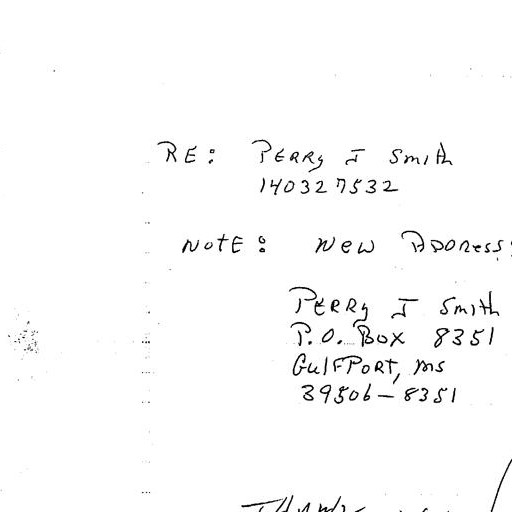 RE: PERRy J Smith
140327532
NotE: New ADDRess:
PERRy J Smith
P.O. Box 8351
GulFPORT, ms
39506-8351